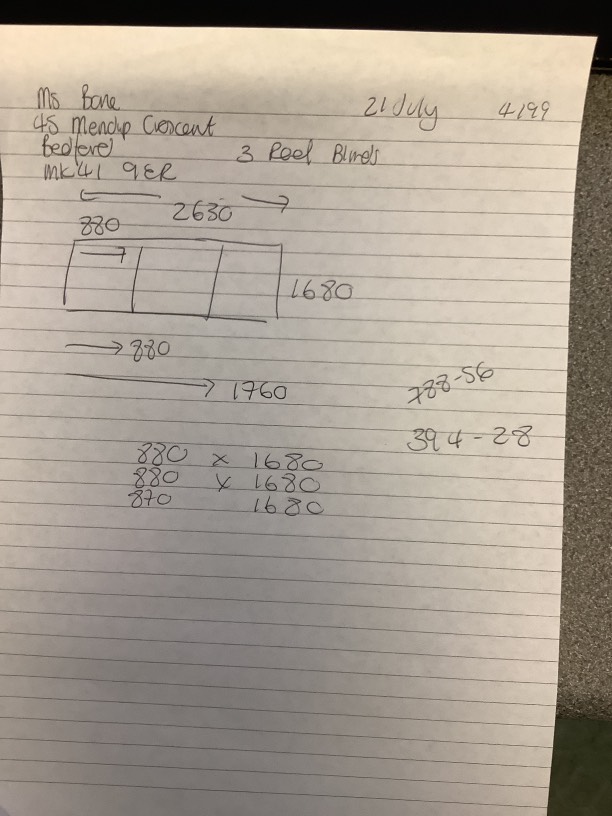 Ms Bone
21 July 4199
45 Mendip Crescent
Bedford
3 Roof Blinds
MK41 9ER
2630
880
1680
880
1760
788-56
394-28
880 x 1680
880 x 1680
870 1680